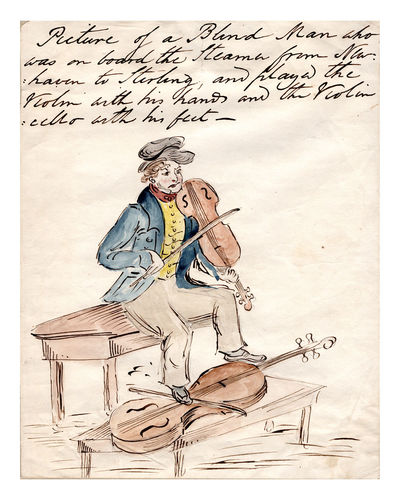 Picture of a Blind Man who
was on board the Steamer from New:
:haven to Sterling, and played the
Violin with his hands and the Violin
:cello with his feet —